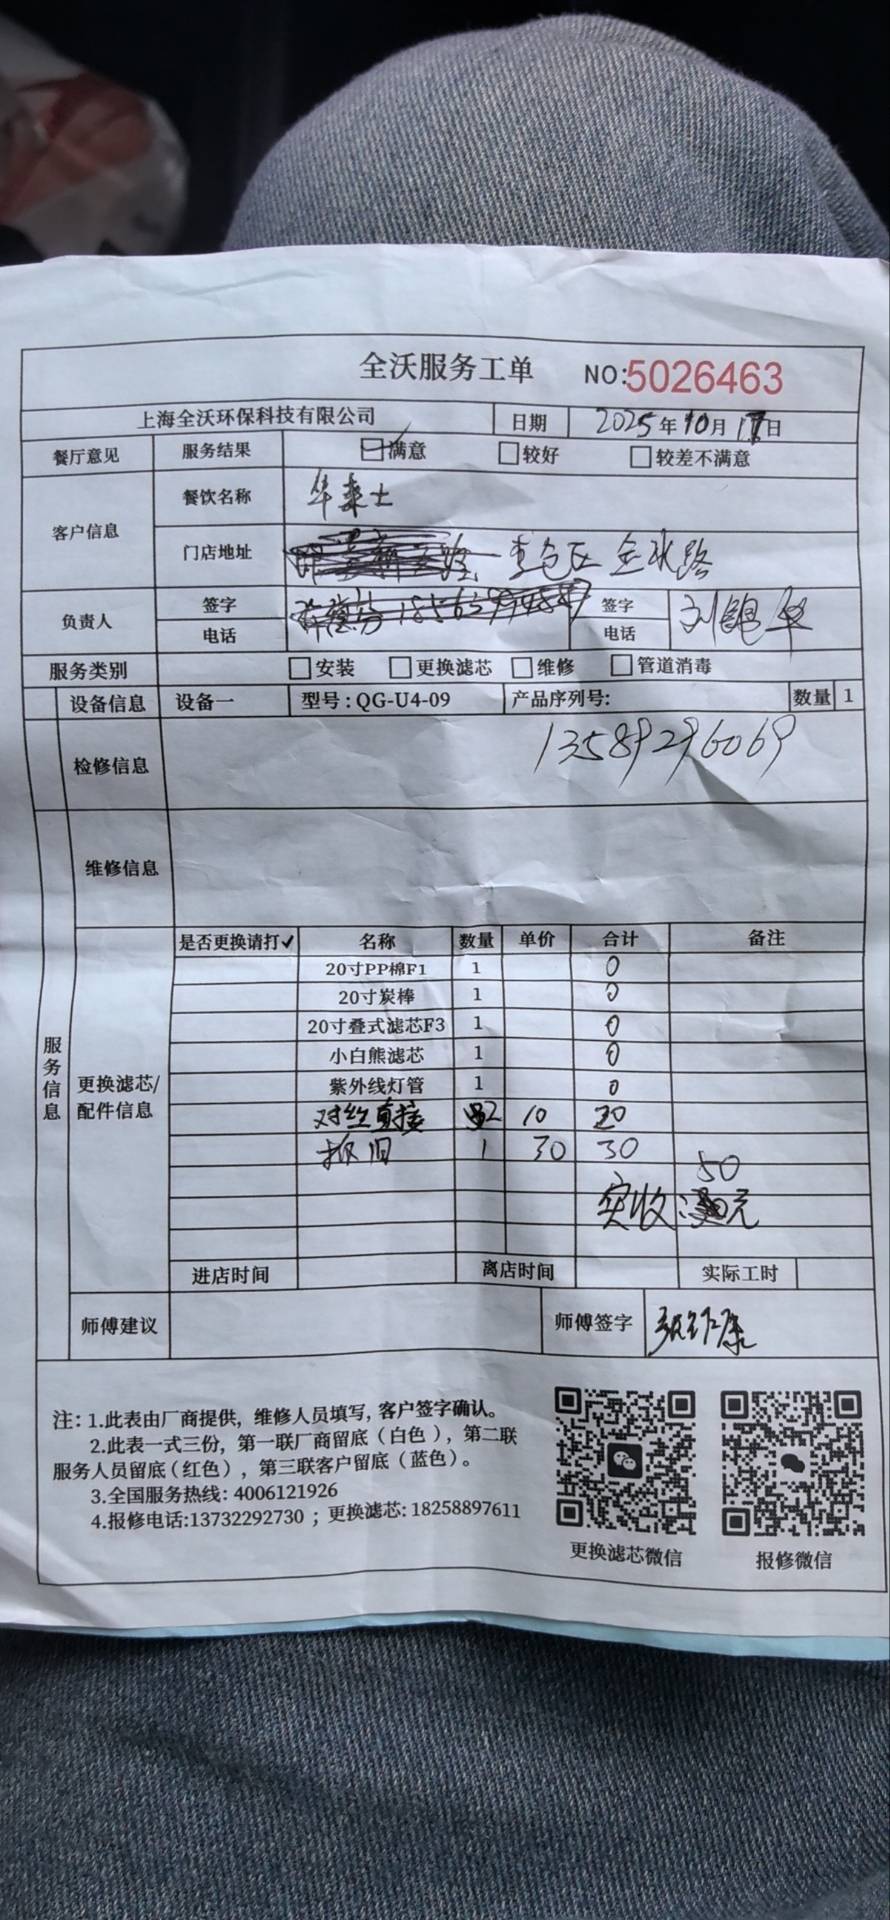 全沃服务工单 NO:5026463
上海全沃环保科技有限公司 日期 2025年10月17日
餐厅意见 服务结果 满意 较好 较差不满意
客户信息 餐饮名称 华莱士
门店地址 李仓区 金水路
负责人 签字 签字
电话 电话
服务类别 安装 更换滤芯 维修 管道消毒
设备信息 设备一 型号:QG-U4-09 产品序列号: 数量 1
检修信息 13589296069
维修信息
服务信息
更换滤芯/配件信息
是否更换请打✓ 名称 数量 单价 合计 备注
20寸PP棉F1 1 0
20寸炭棒 1 0
20寸叠式滤芯F3 1 0
小白熊滤芯 1 0
紫外线灯管 1 0
对丝直接 2 10 20
拆旧 1 30 30
50
实收 元
进店时间 离店时间 实际工时
师傅建议 师傅签字
注：1.此表由厂商提供, 维修人员填写, 客户签字确认。
2.此表一式三份, 第一联厂商留底（白色）, 第二联
服务人员留底（红色）, 第三联客户留底（蓝色）。
3.全国服务热线: 4006121926
4.报修电话:13732292730 ; 更换滤芯: 18258897611
更换滤芯微信 报修微信